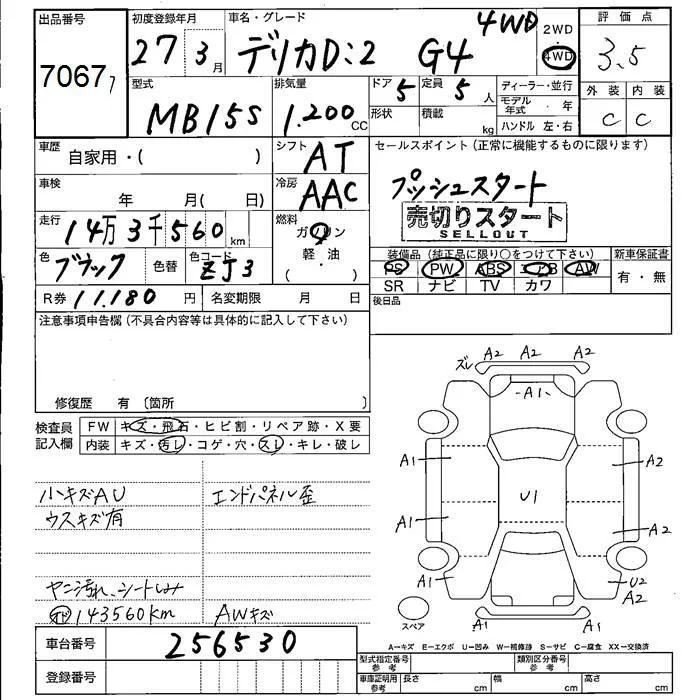 出品番号
70677
初度登録年月
27 3月
車名・グレード
デリカD:2 G4 4WD
2WD
4WD
評価点
3.5
外装 内装
C C
型式
MB15S
排気量
1.200 CC
ドア 5
形状
定員 5 人
積載 kg
ディーラー・並行
モデル年式 ・ 年
ハンドル 左・右
車歴
自家用・( )
シフト
AT
セールスポイント(正常に機能するものに限ります)
プッシュスタート
売切りスタート
SELLOUT
車検
年 月( 日)
冷房
AAC
走行
14万3千560km
燃料
ガソリン
軽・油
( )
色
ブラック
色替
色コード
ZJ3
装備品(純正品に限り○をつけて下さい)
PS PW ABS エアB AW
SR ナビ TV カワ
新車保証書
有・無
R券 11.180 円
名変期限 月 日
後日品
注意事項申告欄(不具合内容等は具体的に記入して下さい)
修復歴 有 〔箇所 〕
検査員記入欄
FW キズ・飛石・ヒビ割・リペア跡・X要
内装 キズ・汚レ・コゲ・穴・スレ・キレ・破レ
ハキズAU
ウスキズ有
エンドパネル歪
ヤニ汚れ、シートしみ
143560km
AWキズ
ズレ A2 A2 A2
A1
A1 A2
U1
A1 A2
A1 U2
A2
スペア
A1 A1
車台番号
256530
登録番号
A-キズ E-エクボ U-凹み W-補修跡 S-サビ C-腐食 XX-交換済
型式指定番号
参考
類別区分番号
参考
車庫証明用
参考
長さ cm
幅 cm
高さ cm